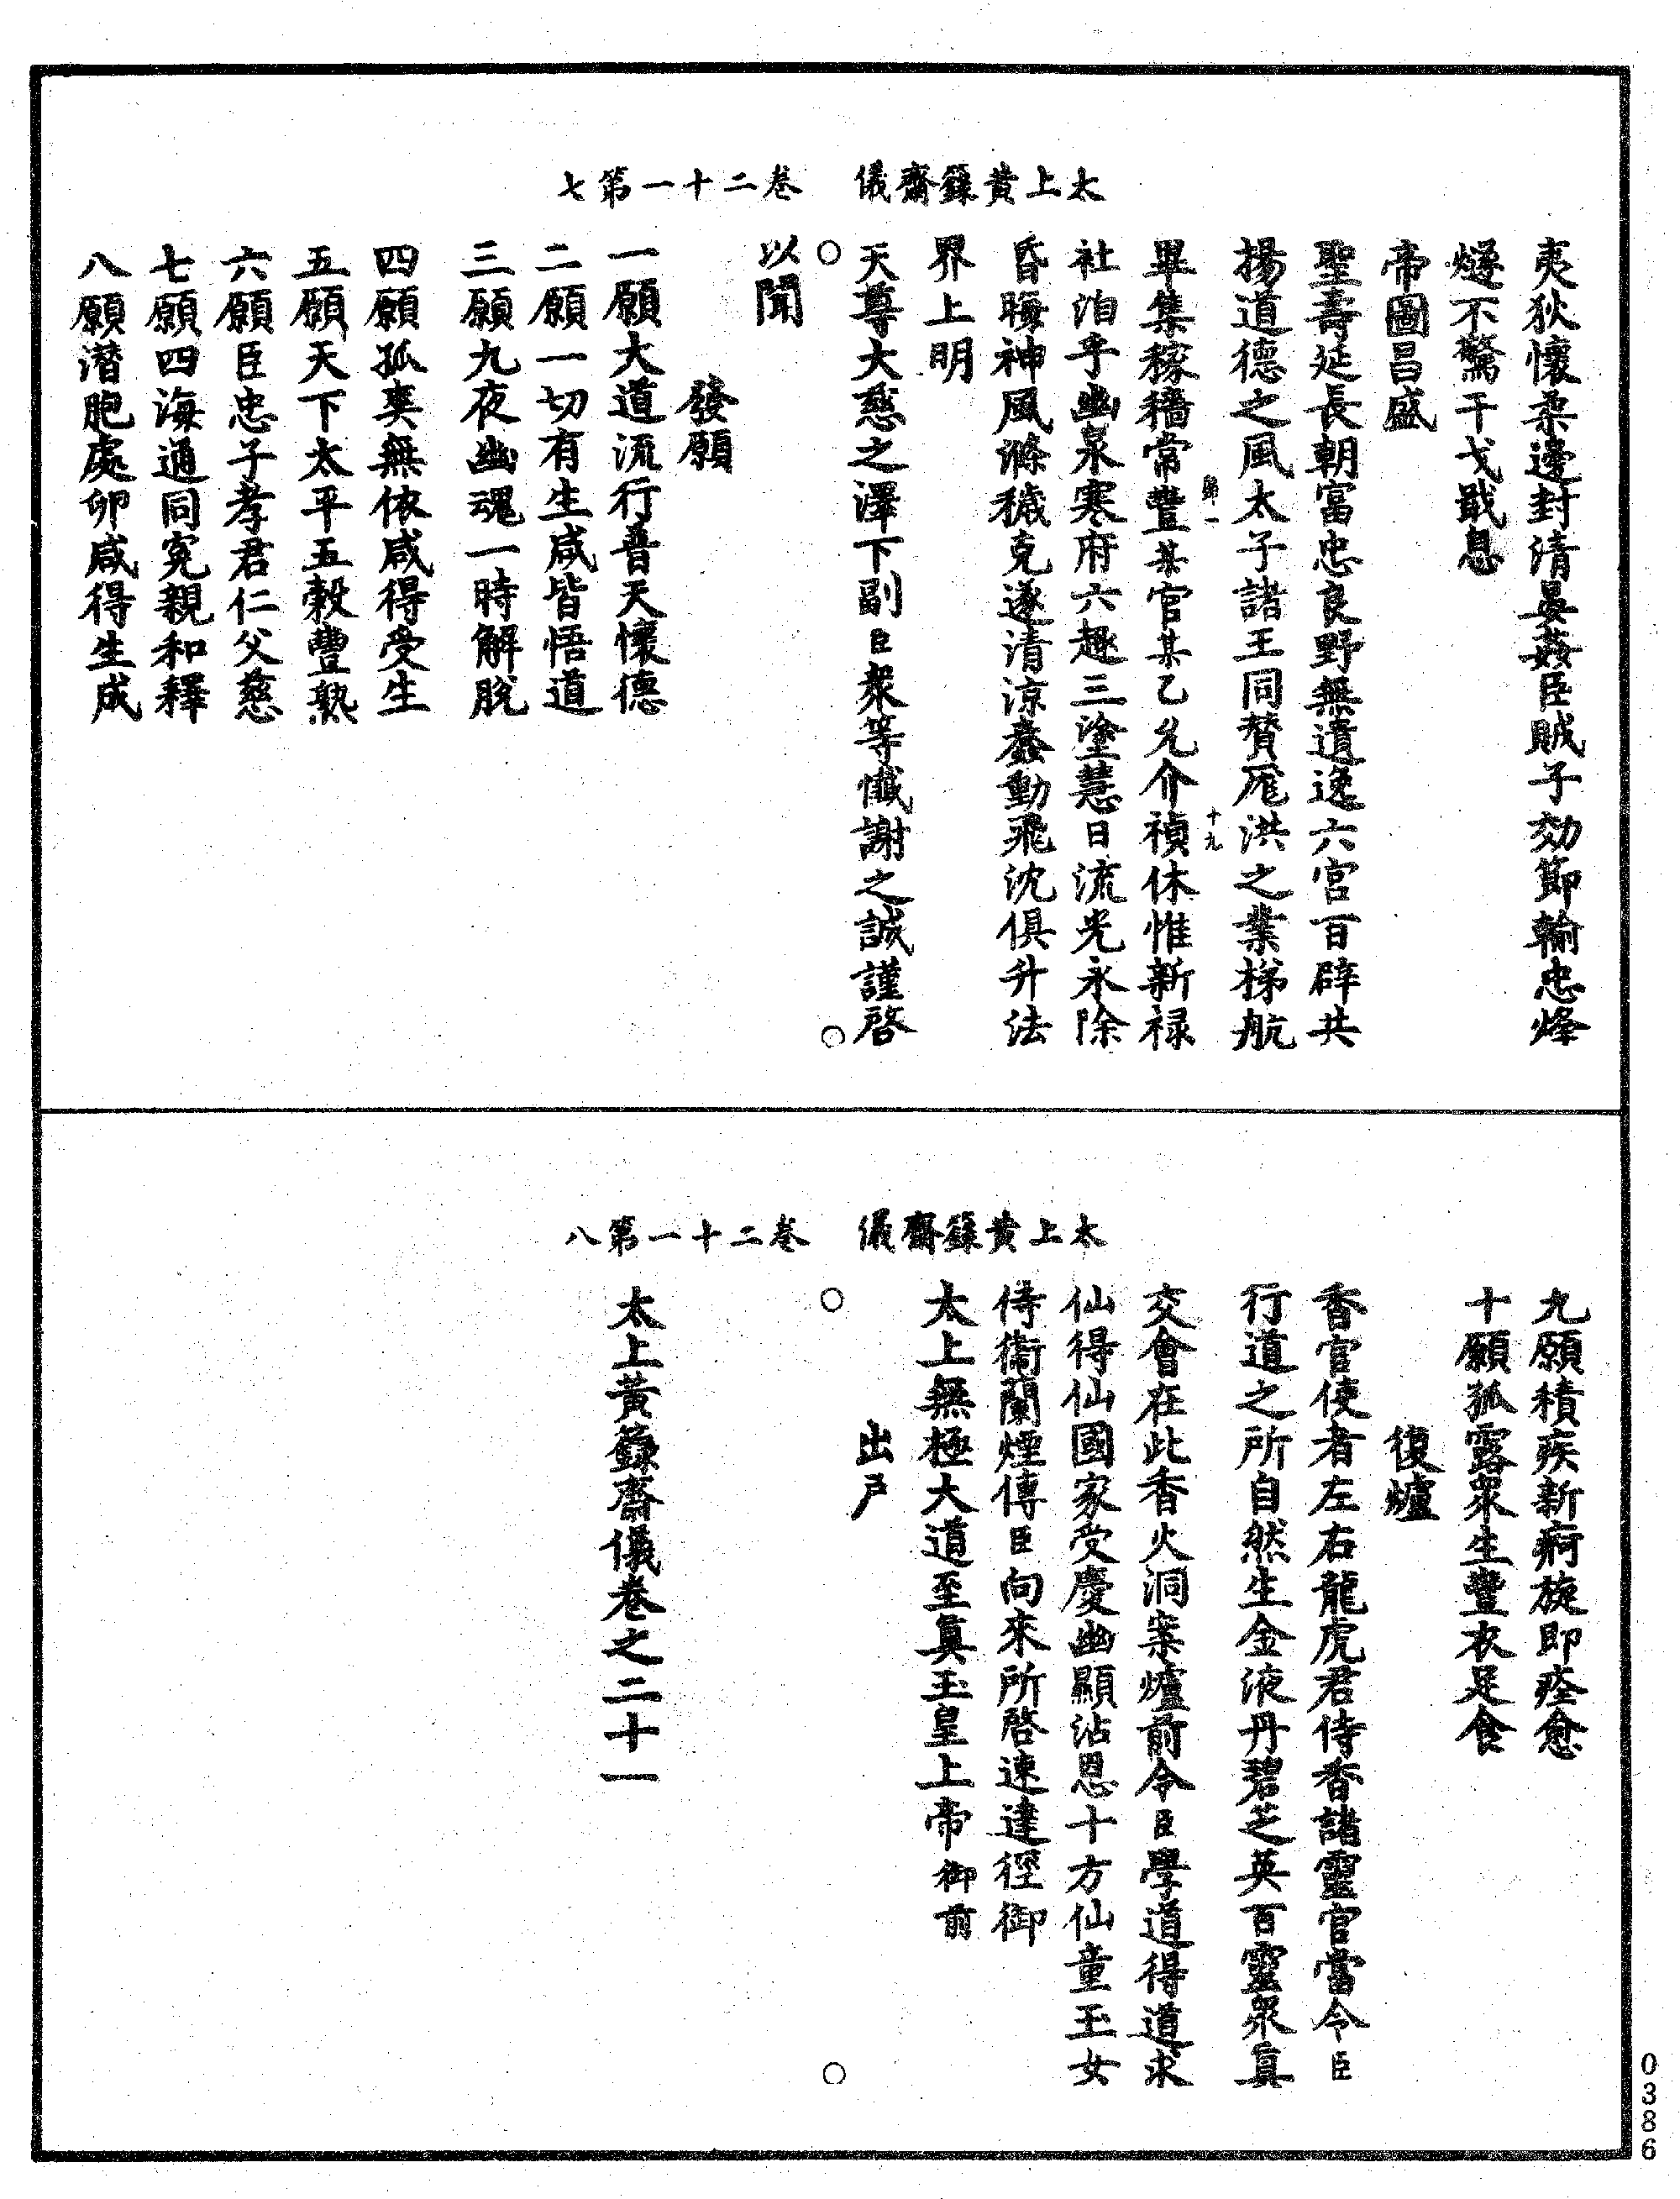 太上黃籙齋儀　卷二十一第七
夷狄懷柔邊封清晏姦臣賊子効節輸忠烽
燧不驚干戈戢息
帝圖昌盛
聖壽延長朝富忠良野無遺逸六宮百辟共
揚道德之風太子諸王同贊厖洪之業梯航
十九
畢集稼穡常豐某官某乙允介禎休惟新祿
社洎乎幽泉寒府六趣三塗慧日流光永除
昏晦神風滌穢克遂清涼蠢動飛沈俱升法
界上明
天尊大慈之澤下副臣衆等懺謝之誠謹啓
以聞
發願
一願大道流行普天懷德
二願一切有生咸皆悟道
三願九夜幽魂一時解脫
四願孤㷀無依咸得受生
五願天下太平五穀豐熟
六願臣忠子孝君仁父慈
七願四海通同寃親和釋
八願潛胞處卵咸得生成
太上黃籙齋儀　卷二十一第八
九願積疾新痾旋即痊愈
十願孤露衆生豐衣足食
復爐
香官使者左右龍虎君侍香諸靈官當令臣
行道之所自然生金液丹碧芝英百靈衆真
交會在此香火洞案爐前令臣學道得道求
仙得仙國家受慶幽顯沾恩十方仙童玉女
侍衛蘭煙傳臣向來所啓速達徑御
太上無極大道至真玉皇上帝御前
出戶
太上黃籙齋儀卷之二十一
0386